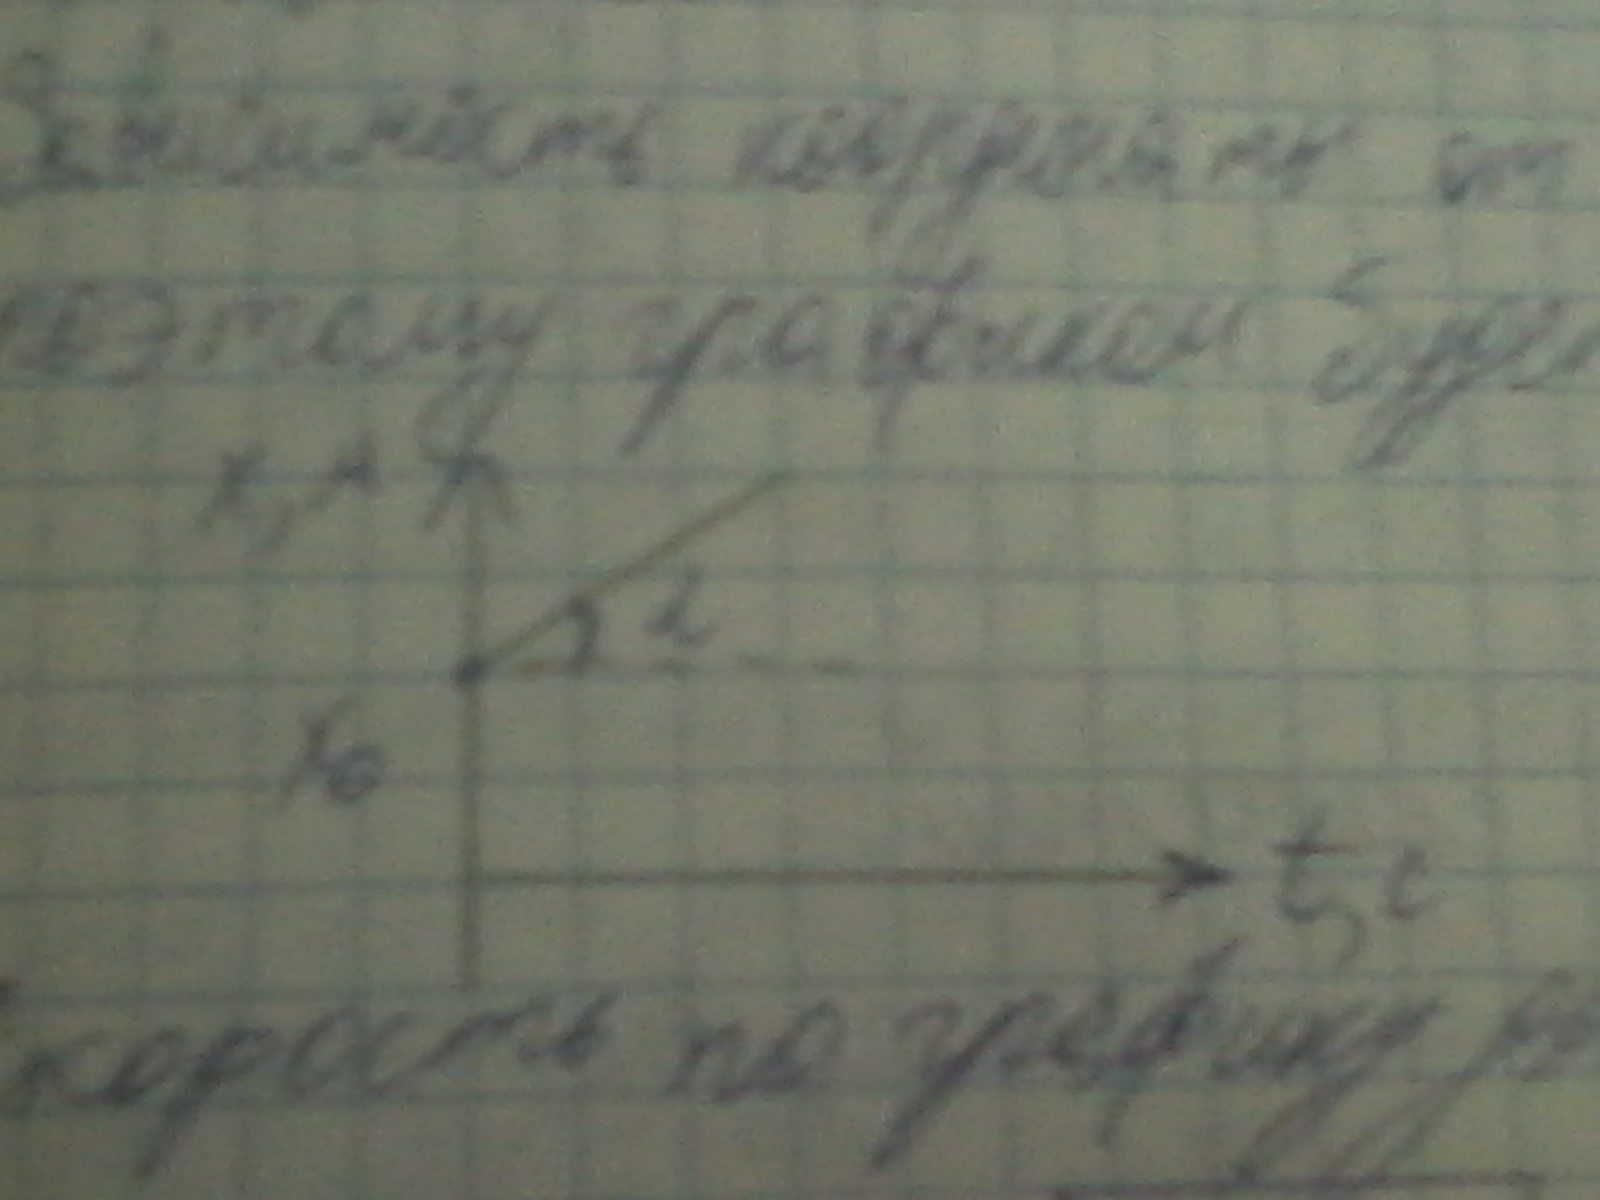 Зависимость координаты от
поэтому графиком буде
x, м
α
x₀
t, c
корость по графику ра